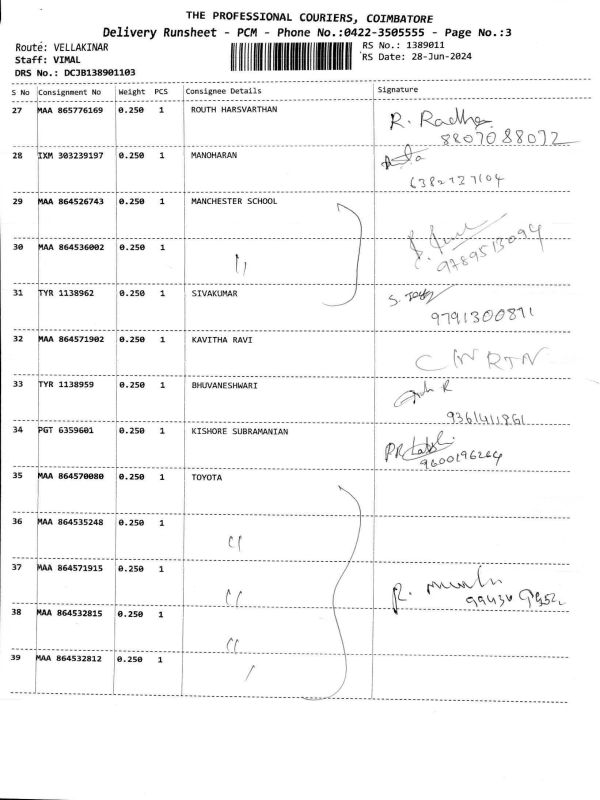 THE PROFESSIONAL COURIERS, COIMBATORE
Delivery Runsheet - PCM - Phone No.:0422-3505555 - Page No.:3
Route: VELLAKINAR
RS No.: 1389011
Staff: VIMAL
RS Date: 28-Jun-2024
DRS No.: DCJB138901103
S No Consignment No Weight PCS Consignee Details Signature
27 MAA 865776169 0.250 1 ROUTH HARSVARTHAN R. Radha
8807088072
28 IXM 303239197 0.250 1 MANOHARAN
29 MAA 864526743 0.250 1 MANCHESTER SCHOOL
30 MAA 864536002 0.250 1 "
9789513094
31 TYR 1138962 0.250 1 SIVAKUMAR
9791300871
32 MAA 864571902 0.250 1 KAVITHA RAVI
C N RTN
33 TYR 1138959 0.250 1 BHUVANESHWARI
34 PGT 6359601 0.250 1 KISHORE SUBRAMANIAN
9600196264
35 MAA 864570080 0.250 1 TOYOTA
36 MAA 864535248 0.250 1 "
37 MAA 864571915 0.250 1 "
38 MAA 864532815 0.250 1 "
39 MAA 864532812 0.250 1